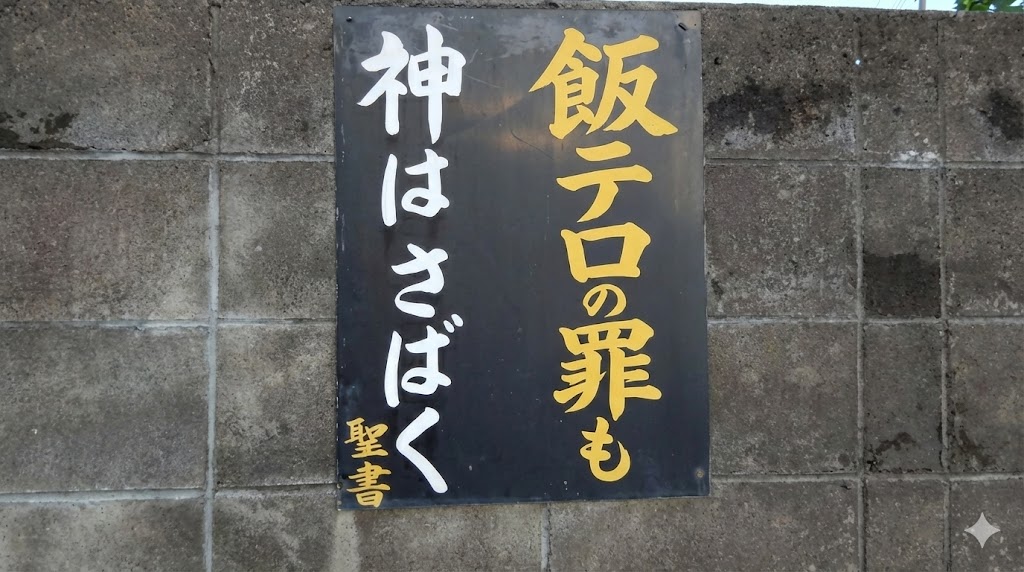 飯テロの罪も
神はさばく
聖書